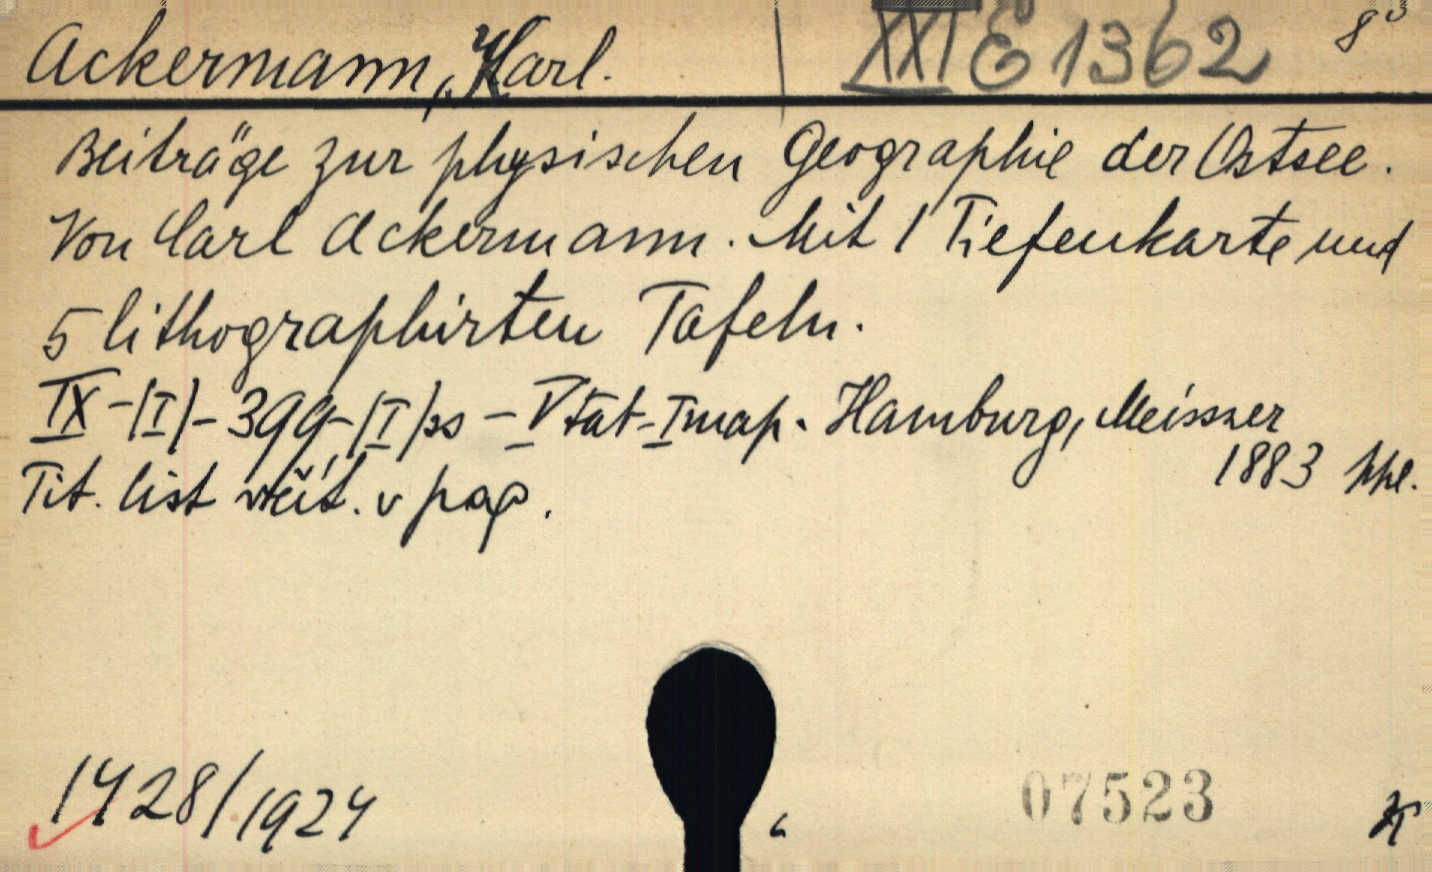 Ackermann, Karl. XXI E 1362 8°
Beiträge zur physischen Geographie der Ostsee.
Von Carl Ackermann. Mit 1 Tiefenkarte und
5 lithographirten Tafeln.
IX-(I)-399-(I)ss - V tat-I map. Hamburg, Meissner
1883 hpl.
Tit. list v pag.
1428/1924
07523